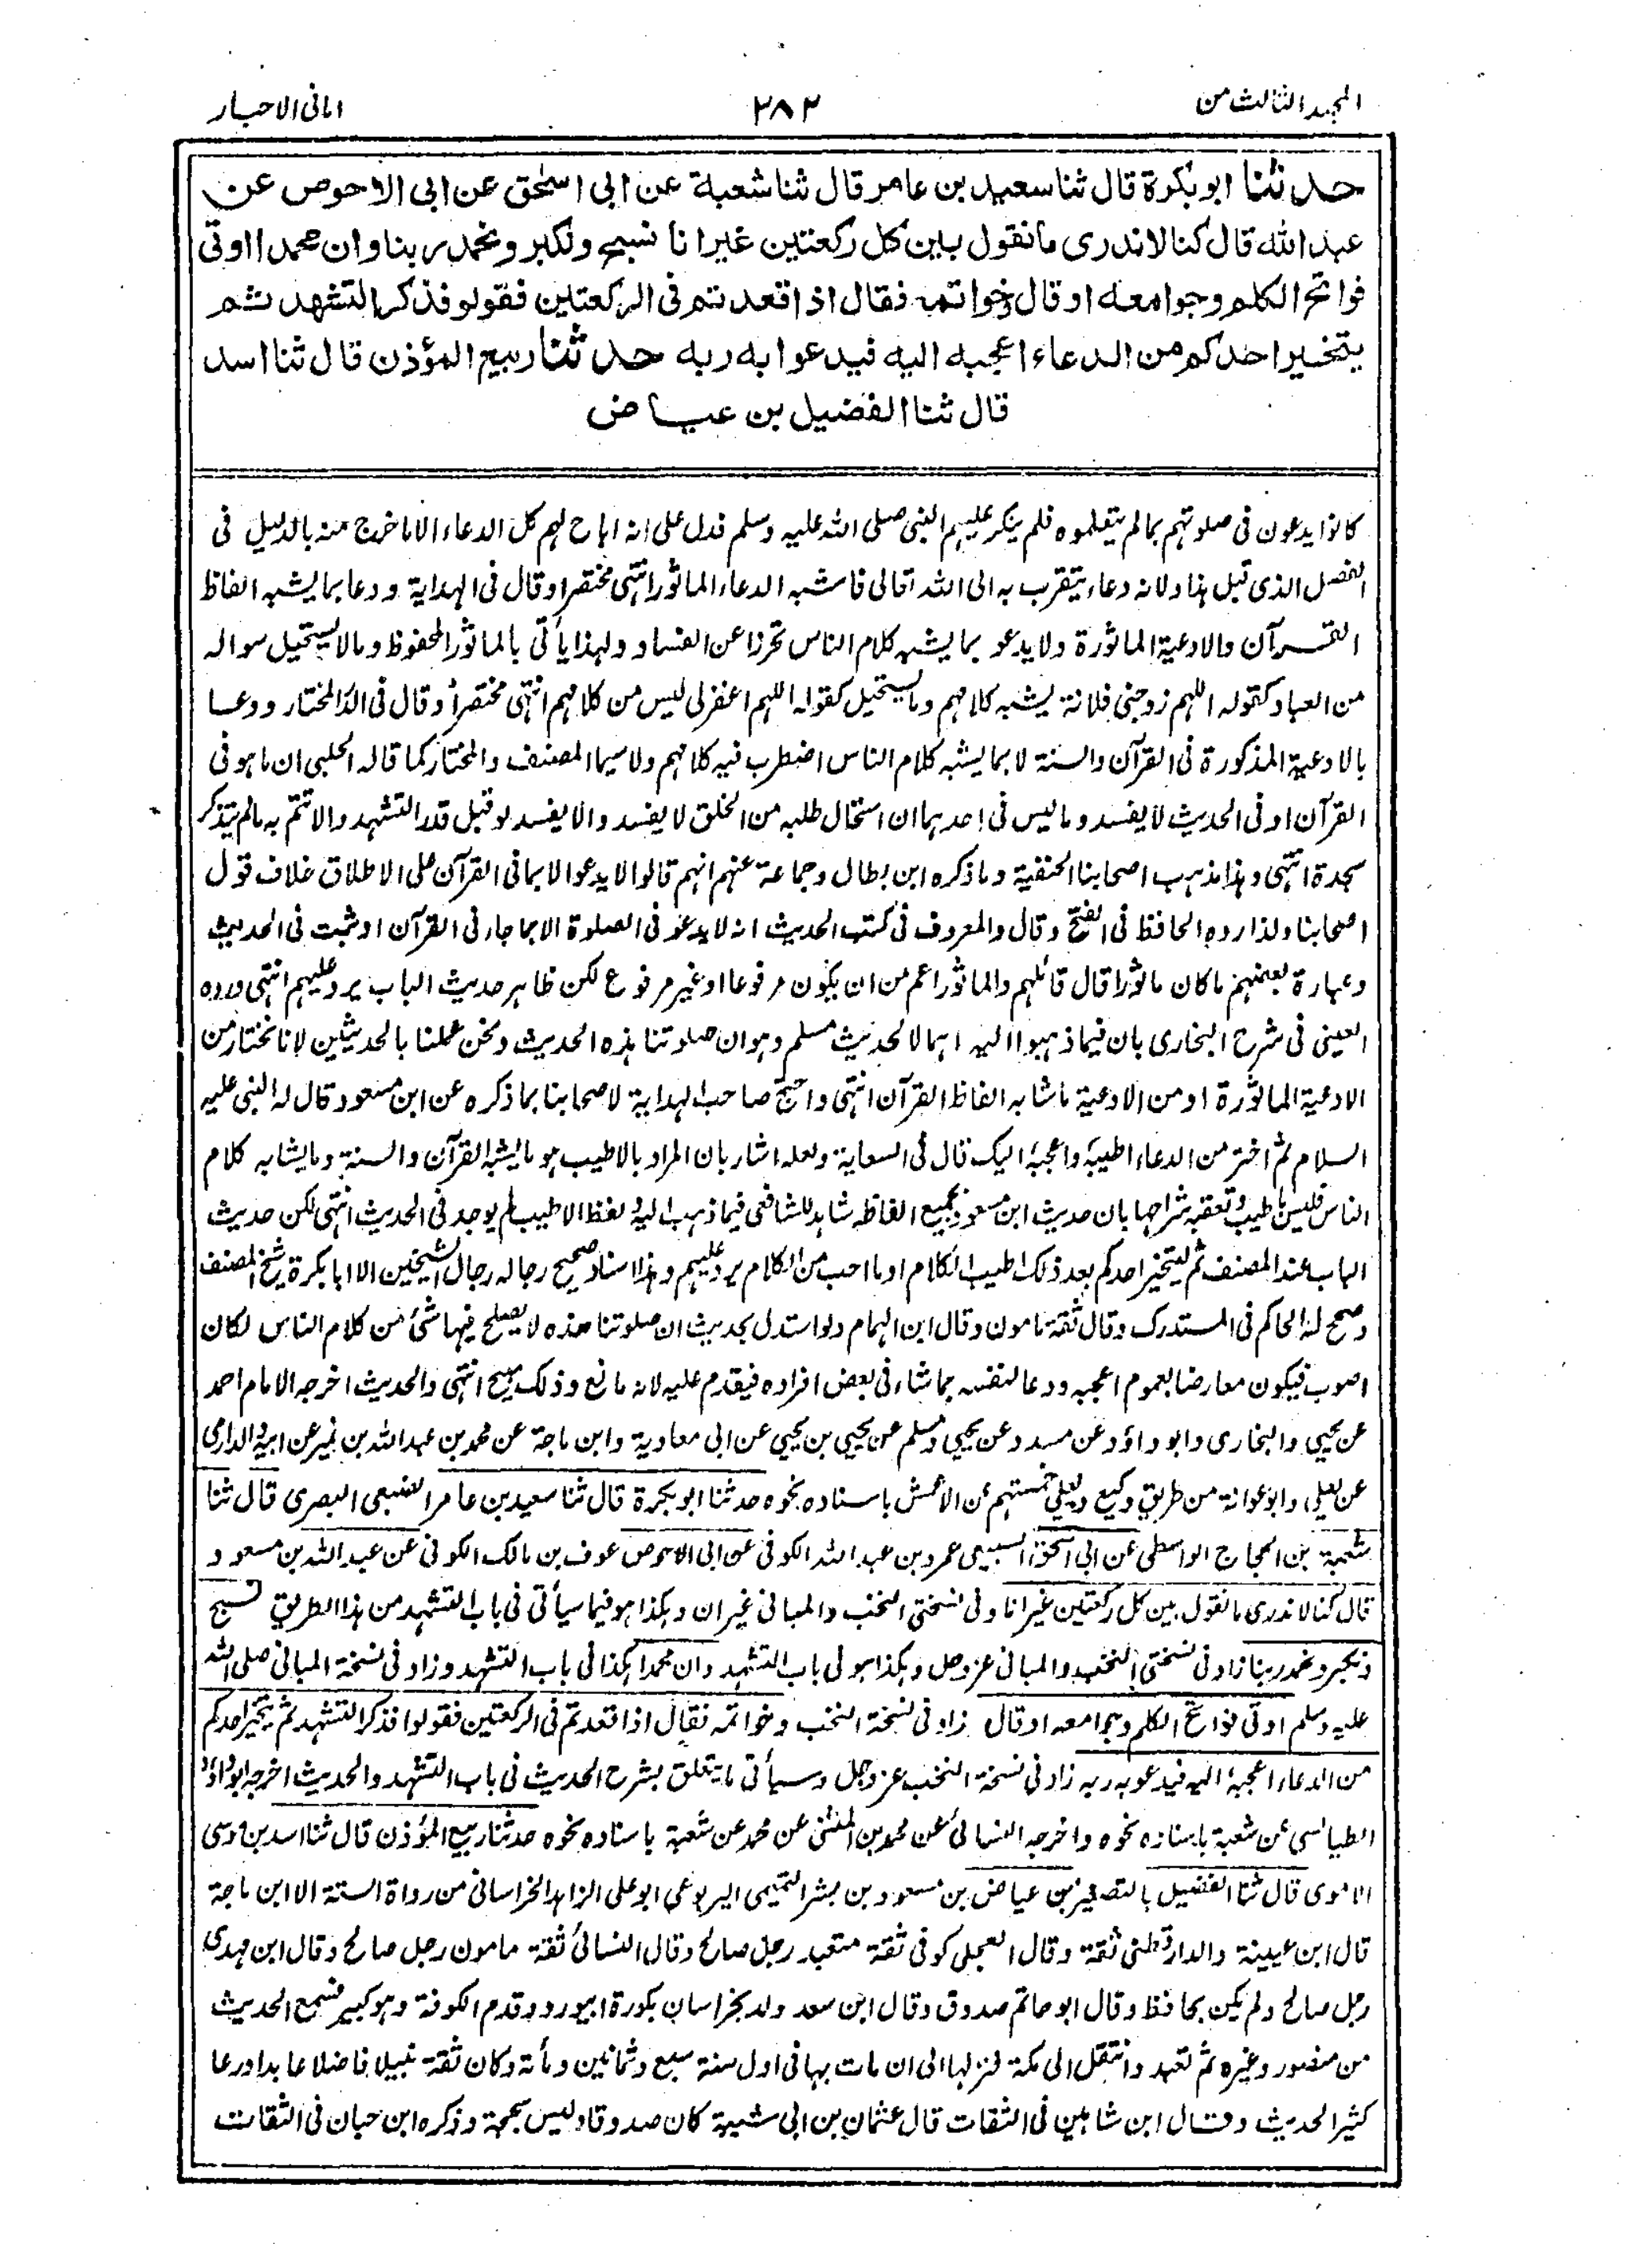 المجلد الثالث من
٣٨٢
امانی الاحبار
حدثنا ابو بكرة قال ثنا سعيد بن عامر قال ثنا شعبة عن ابى اسحٰق عن ابى الاحوص عن
عبد الله قال كنا لا ندرى ما نقول بين كل ركعتين غير انا نسبح ونكبر ونحمد ربنا وان محمدا اوتى
فواتح الكلم وجوامعه او قال وخواتمه فقال اذا قعدتم فى الركعتين فقولو فذكر التشهد ثم
يتخير احدكم من الدعاء اعجبه اليه فيدعوا به ربه حدثنا ربيع المؤذن قال ثنا اسد
قال ثنا الفضيل بن عياض
كانوا يدعون فى صلوتهم بما لم يتعلموه فلم ينكر عليهم النبى صلى الله عليه وسلم فدل على انه اباح لهم كل الدعاء الا ما خرج منه بالدليل فى
الفصل الذى قبل هذا ولانه دعاء يتقرب به الى الله تعالى فاشبه الدعاء الماثور انتهى مختصرا وقال فى الهداية ودعا بما يشبه الفاظ
القرآن والادعية الماثورة ولا يدعو بما يشبه كلام الناس تحرزا عن الفساد ولهذا يأتى بالماثور المحفوظ وما لا يستحيل سواله
من العباد كقوله اللهم زوجنى فلانة يشبه كلامهم وما يستحيل كقوله اللهم اغفرلى ليس من كلامهم انتهى مختصراً وقال فى الدر المختار ودعا
بالادعية المذكورة فى القرآن والسنة لا بما يشبه كلام الناس اضطرب فيه كلامهم ولا سيما المصنف والمختار كما قاله الحلبى ان ما هو فى
القرآن او فى الحديث لا يفسد وما ليس فى احدهما ان استحال طلبه من الخلق لا يفسد والا يفسد لو قبل قدر التشهد والا تتم به مالم يتذكر
سجدة انتهى وهذا مذهب اصحابنا الحنفية وما ذكره ابن بطال وجماعة عنهم انهم قالوا لا يدعو الا بما فى القرآن على الاطلاق خلاف قول
اصحابنا ولذا رده الحافظ فى الفتح وقال والمعروف فى كتب الحديث انه لا يدعو فى الصلوة الا بما جاء فى القرآن او ثبت فى الحديث
وعبارة بعضهم ما كان ماثورا قال قائلهم والماثور اعم من ان يكون مرفوعا او غير مرفوع لكن ظاهر حديث الباب يرد عليهم انتهى ورده
العينى فى شرح البخارى بان فيما ذهبوا اليه اهمالا لحديث مسلم وهو ان صلوتنا هذه الحديث ونحن عملنا بالحديثين لانا نختار من
الادعية الماثورة او من الادعية ما شابه الفاظ القرآن انتهى واحتج صاحب الهداية لاصحابنا بما ذكره عن ابن مسعود قال له النبى عليه
السلام ثم اختر من الدعاء اطيبه واعجبه اليك قال فى السعاية ولعله اشار بان المراد بالاطيب هو ما يشبه القرآن والسنة وما يشابه كلام
الناس فليس باطيب وتعقبه شراحها بان حديث ابن مسعود بجميع الفاظه شاهد للشافعى فيما ذهب اليه ولفظ الاطيب لم يوجد فى الحديث انتهى لكن حديث
الباب عند المصنف ثم ليتخير احدكم بعد ذلك اطيب الكلام او ما احب من الكلام يرد عليهم وهذا اسناد صحيح رجاله رجال الشيخين الا ابا بكرة شيخ المصنف
وصحح له الحاكم فى المستدرك وقال ثقة مامون وقال ابن الهمام ولو استدل بحديث ان صلوتنا هذه لا يصلح فيها شئ من كلام الناس لكان
اصوب فيكون معارضا بعموم اعجبه ودعا لنفسه بما شاء فى بعض افراده فيقدم عليه لانه مانع وذلك مبيح انتهى والحديث اخرجه الامام احمد
عن يحيى والبخارى وابو داؤد عن مسدد عن يحيى ومسلم عن يحيى بن يحيى عن ابى معاوية وابن ماجة عن محمد بن عبد الله بن نمير عن ابيه والدارمى
عن يعلى وابو عوانة من طريق وكيع ويعلى خمستهم عن الاعمش باسناده نحوه حدثنا ابو بكرة قال ثنا سعيد بن عامر الضبعى البصرى قال ثنا
شعبة بن الحجاج الواسطى عن ابى اسحٰق السبيعى عمرو بن عبد الله الكوفى عن ابى الاحوص عوف بن مالك الكوفى عن عبد الله بن مسعود
قال كنا لا ندرى ما نقول بين كل ركعتين غير انا وفى نسختى النخب والمبانى غير ان وهكذا هو فيما سيأتى فى باب التشهد من هذا الطريق نسبح
ونكبر ونحمد ربنا زاد فى نسختى النخب والمبانى عز وجل وهكذا هو فى باب التشهد وان محمدا هكذا فى باب التشهد وزاد فى نسخة المبانى صلى الله
عليه وسلم اوتى فواتح الكلم وجوامعه او قال زاد فى نسخة النخب وخواتمه فقال اذا قعدتم فى الركعتين فقولوا فذكر التشهد ثم يتخير احدكم
من الدعاء اعجبه اليه فيدعو به ربه زاد فى نسخة النخب عز وجل وسيأتى ما يتعلق بشرح الحديث فى باب التشهد والحديث اخرجه ابو داؤد
الطيالسى عن شعبة باسناده نحوه واخرجه النسائى عن محمد بن المثنى عن محمد عن شعبة باسناده نحوه حدثنا ربيع المؤذن قال ثنا اسد بن موسى
الاموى قال ثنا الفضيل بالتصغير بن عياض بن مسعود بن بشر التميمى اليربوعى ابو على الزاهد الخراسانى من رواة الستة الا ابن ماجة
قال ابن عيينة والدارقطنى ثقة وقال العجلى كوفى ثقة متعبد رجل صالح وقال النسائى ثقة مامون رجل صالح وقال ابن مهدى
رجل صالح ولم يكن بحافظ وقال ابو حاتم صدوق وقال ابن سعد ولد بخراسان بكورة ابيورد وقدم الكوفة وهو كبير فسمع الحديث
من منصور وغيره ثم تعبد وانتقل الى مكة فنزلها الى ان مات بها فى اول سنة سبع وثمانين ومأة وكان ثقة نبيلا فاضلا عابدا ورعا
كثير الحديث وقال ابن شاهين فى الثقات قال عثمان بن ابى شيبة كان صدوقا وليس بحجة وذكره ابن حبان فى الثقات